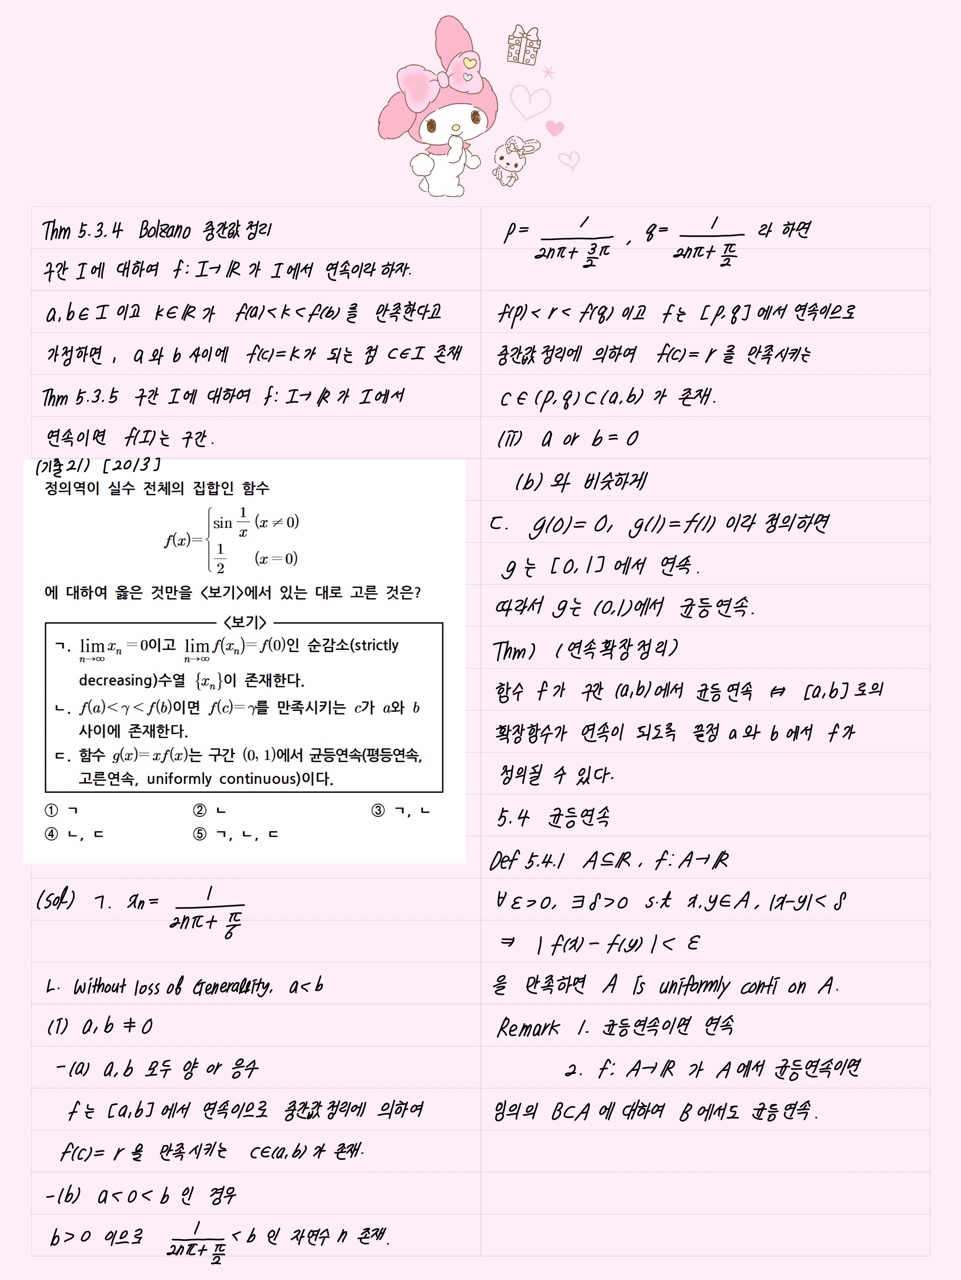 Thm 5.3.4 Bolzano 중간값 정리
구간 I에 대하여 f: I→ℝ가 I에서 연속이라 하자.
a,b∈I 이고 k∈ℝ가 f(a)<k<f(b)를 만족한다고
가정하면, a와 b 사이에 f(c)=k가 되는 점 c∈I 존재
Thm 5.3.5 구간 I에 대하여 f: I→ℝ가 I에서
연속이면 f(I)는 구간.
(기출21) [2013]
정의역이 실수 전체의 집합인 함수
f(x)={ sin 1/x (x≠0)
1/2 (x=0)
에 대하여 옳은 것만을 <보기>에서 있는 대로 고른 것은?
<보기>
ㄱ. lim_{n→∞} x_n=0이고 lim_{n→∞} f(x_n)=f(0)인 순감소(strictly
decreasing)수열 {x_n}이 존재한다.
ㄴ. f(a)<γ<f(b)이면 f(c)=γ를 만족시키는 c가 a와 b
사이에 존재한다.
ㄷ. 함수 g(x)=xf(x)는 구간 (0, 1)에서 균등연속(평등연속,
고른연속, uniformly continuous)이다.
① ㄱ ② ㄴ ③ ㄱ, ㄴ
④ ㄴ, ㄷ ⑤ ㄱ, ㄴ, ㄷ
(sol) ㄱ. x_n = 1/(2nπ+π/6)
ㄴ. Without loss of Generality. a<b
(i) a,b ≠ 0
-(a) a,b 모두 양 or 음수
f는 [a,b]에서 연속이므로 중간값 정리에 의하여
f(c)=r을 만족시키는 c∈(a,b)가 존재.
-(b) a<0<b 인 경우
b>0 이므로 1/(2nπ+π/2) < b 인 자연수 n 존재.
p = 1/(2nπ+3/2π), q = 1/(2nπ+π/2) 라 하면
f(p)<r<f(q)이고 f는 [p,q]에서 연속이므로
중간값 정리에 의하여 f(c)=r를 만족시키는
c∈(p,q)⊂(a,b)가 존재.
(ii) a or b=0
(b)와 비슷하게
ㄷ. g(0)=0, g(1)=f(1)이라 정의하면
g는 [0,1]에서 연속.
따라서 g는 (0,1)에서 균등연속.
Thm) (연속확장정리)
함수 f가 구간 (a,b)에서 균등연속 ⇔ [a,b]로의
확장함수가 연속이 되도록 끝점 a와 b에서 f가
정의될 수 있다.
5.4 균등연속
Def 5.4.1 A⊆ℝ, f: A→ℝ
∀ε>0, ∃δ>0 s.t x,y∈A, |x-y|<δ
⇒ |f(x)-f(y)|<ε
을 만족하면 A is uniformly conti on A.
Remark 1. 균등연속이면 연속
2. f: A→ℝ가 A에서 균등연속이면
임의의 B⊂A에 대하여 B에서도 균등연속.